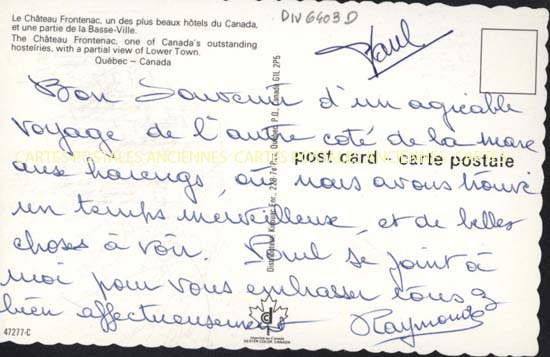 Le Château Frontenac, un des plus beaux hôtels du Canada,
et une partie de la Basse-Ville.
The Château Frontenac, one of Canada's outstanding
hostelries, with a partial view of Lower Town.
Québec – Canada
DIV 6403 D
Paul
Bon Souvenir d'un agréable
voyage de l'autre coté de la mare
aux harengs, où nous avons trouvé
un temps merveilleux, et de belles
choses à voir. Paul se joint à
moi pour vous embrasser tous 3
bien affectueusement
Raymonde
CARTES POSTALES ANCIENNES CARTES POSTALES ANCIENNES
post card - carte postale
Distributeur Kingsway Enr., 228-7e Rue, Québec, P.Q., Canada G1L 2P5
47277-C
Imprimé au Canada
DEXTER COLOR CANADA